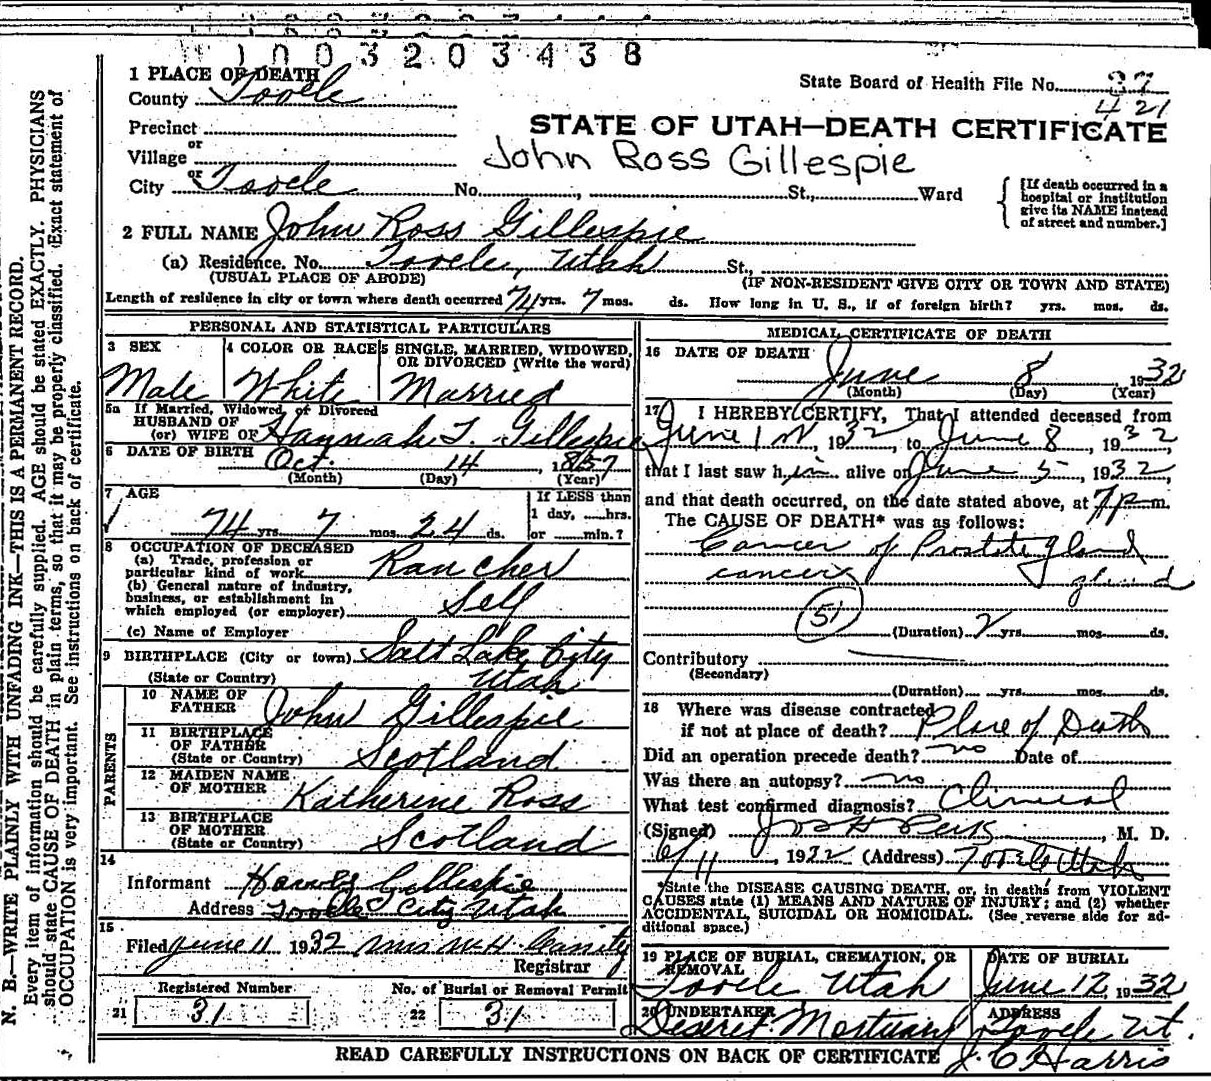 1 0 0 3 2 0 3 4 3 8
1 PLACE OF DEATH
County Tooele
State Board of Health File No. 37
421
Precinct
or
Village
STATE OF UTAH—DEATH CERTIFICATE
John Ross Gillespie
or
City Tooele No. , St., Ward
[If death occurred in a hospital or institution give its NAME instead of street and number.]
2 FULL NAME John Ross Gillespie
(a) Residence. No. Tooele, Utah St.,
(USUAL PLACE OF ABODE) (IF NON-RESIDENT GIVE CITY OR TOWN AND STATE)
Length of residence in city or town where death occurred 74 yrs. 7 mos. ds. How long in U. S., if of foreign birth? yrs. mos. ds.
PERSONAL AND STATISTICAL PARTICULARS
3 SEX
Male
4 COLOR OR RACE
White
5 SINGLE, MARRIED, WIDOWED, OR DIVORCED (Write the word)
Married
5a If Married, Widowed or Divorced
HUSBAND OF
(or) WIFE OF Hannah T. Gillespie
6 DATE OF BIRTH Oct. 14, 1857
(Month) (Day) (Year)
7 AGE
74 yrs. 7 mos. 24 ds.
If LESS than
1 day, hrs.
or min.?
8 OCCUPATION OF DECEASED
(a) Trade, profession or
particular kind of work Rancher
(b) General nature of industry,
business, or establishment in
which employed (or employer) Self
(c) Name of Employer
9 BIRTHPLACE (City or town) Salt Lake City
(State or Country) Utah
PARENTS
10 NAME OF
FATHER John Gillespie
11 BIRTHPLACE
OF FATHER
(State or Country) Scotland
12 MAIDEN NAME
OF MOTHER Katherine Ross
13 BIRTHPLACE
OF MOTHER
(State or Country) Scotland
14
Informant Gillespie
Address Tooele City Utah
15
Filed June 11 1932 Mrs W.H. Cassity
Registrar
Registered Number
21 31
No. of Burial or Removal Permit
22 31
MEDICAL CERTIFICATE OF DEATH
16 DATE OF DEATH
June 8 1932
(Month) (Day) (Year)
17 I HEREBY CERTIFY, That I attended deceased from
June 1st, 1932, to June 8, 1932
that I last saw him alive on June 5, 1932,
and that death occurred, on the date stated above, at 7 p m.
The CAUSE OF DEATH* was as follows:
Cancer of Prostate gland
cancer gland
51
(Duration) 2 yrs. mos. ds.
Contributory
(Secondary)
(Duration) yrs. mos. ds.
18 Where was disease contracted
if not at place of death? Place of Death
Did an operation precede death? no Date of
Was there an autopsy? no
What test confirmed diagnosis? Clinical
(Signed) Jos H Peck, M. D.
6/11, 1932 (Address) Tooele Utah
*State the DISEASE CAUSING DEATH, or, in deaths from VIOLENT
CAUSES state (1) MEANS AND NATURE OF INJURY; and (2) whether
ACCIDENTAL, SUICIDAL OR HOMICIDAL. (See reverse side for ad-
ditional space.)
19 PLACE OF BURIAL, CREMATION, OR
REMOVAL
Tooele Utah
DATE OF BURIAL
June 12, 1932
20 UNDERTAKER
Deseret Mortuary
ADDRESS
Tooele Ut.
J. C. Harris
READ CAREFULLY INSTRUCTIONS ON BACK OF CERTIFICATE
N. B.—WRITE PLAINLY WITH UNFADING INK—THIS IS A PERMANENT RECORD.
Every item of information should be carefully supplied. AGE should be stated EXACTLY. PHYSICIANS
should state CAUSE OF DEATH in plain terms, so that it may be properly classified. Exact statement of
OCCUPATION is very important. See instructions on back of certificate.